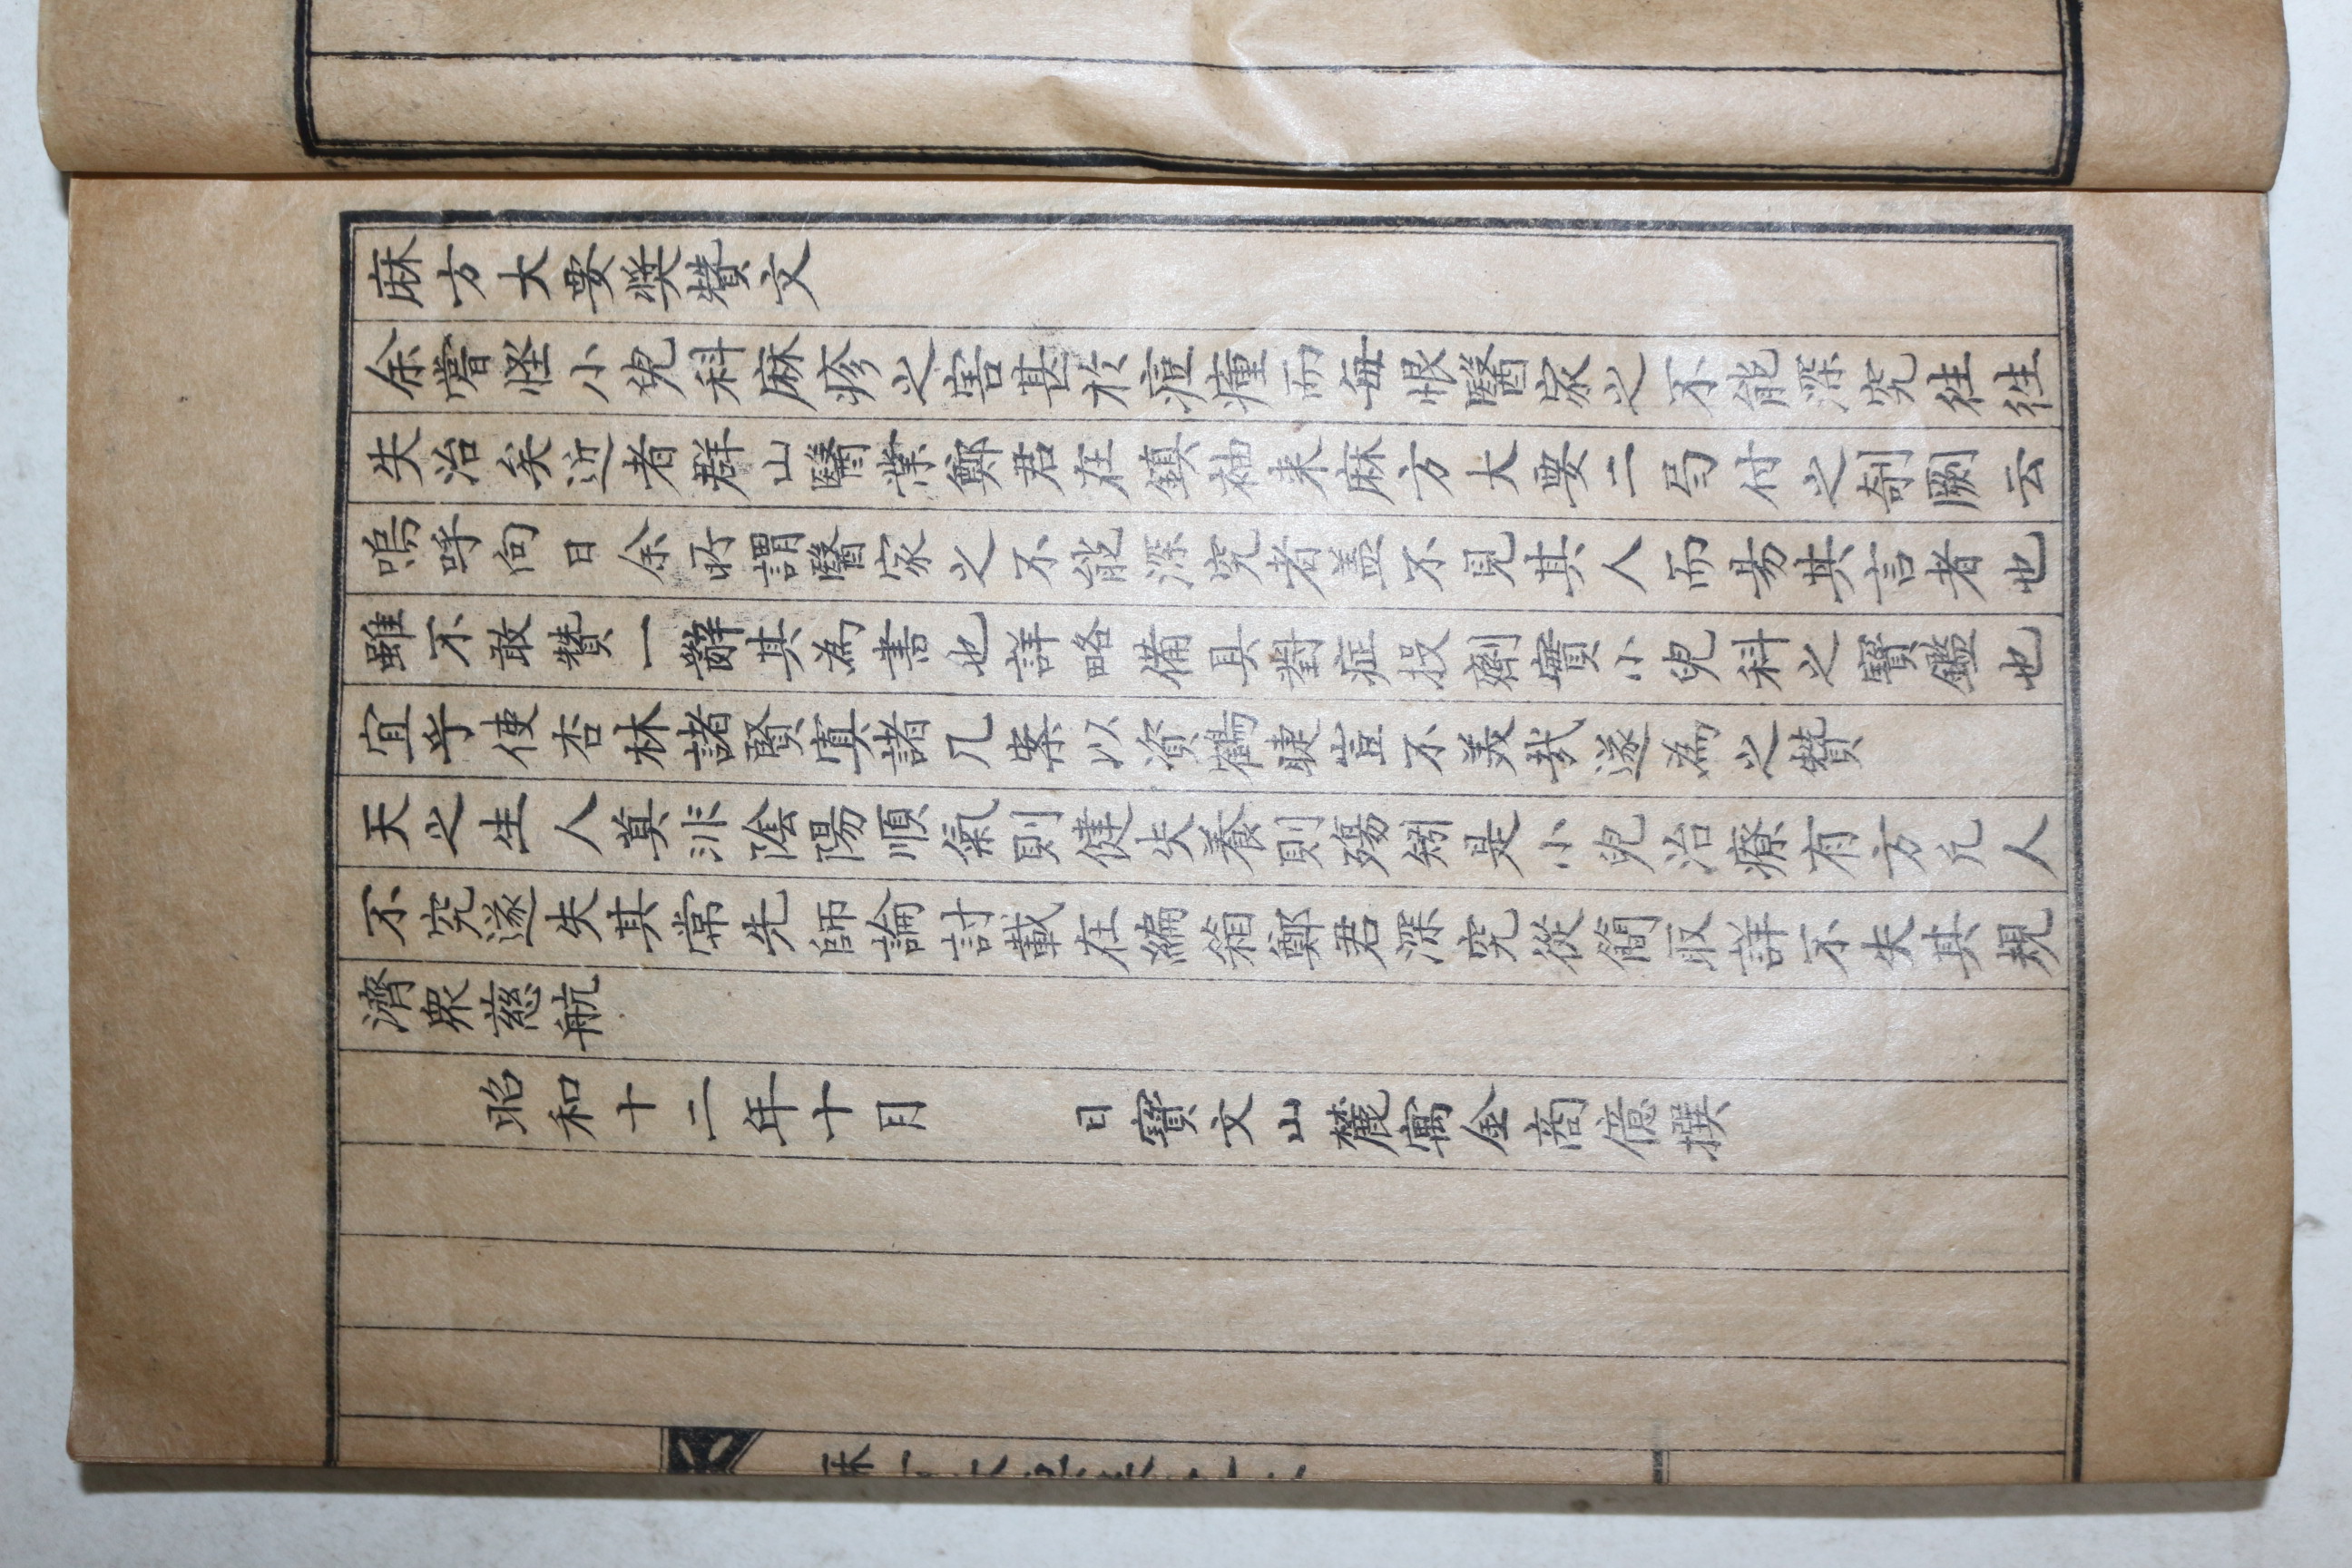 麻方大要奬贊文
余嘗怪小兒科麻疹之害甚於痘瘇而每恨醫家之不能深究往往
失治矣近者群山醫業鄭君在鎮袖来麻方大要二局付之剞劂云
嗚呼向日余所謂醫家之不能深究者盖不見其人而易其言者也
雖不敢贊一辭其為書也詳略備具對症投劑實小兒科之寶鑑也
宜乎使杏林諸賢寘諸几案以資鶴睫豈不美哉遂為之贊
天之生人莫非陰陽順氣則健失養則殤矧是小兒治療有方凡人
不究遂失其常先師論討載在編箱鄭君深究從簡取詳不失其規
濟衆慈航
昭和十二年十月　日寶文山麓寓金商億撰